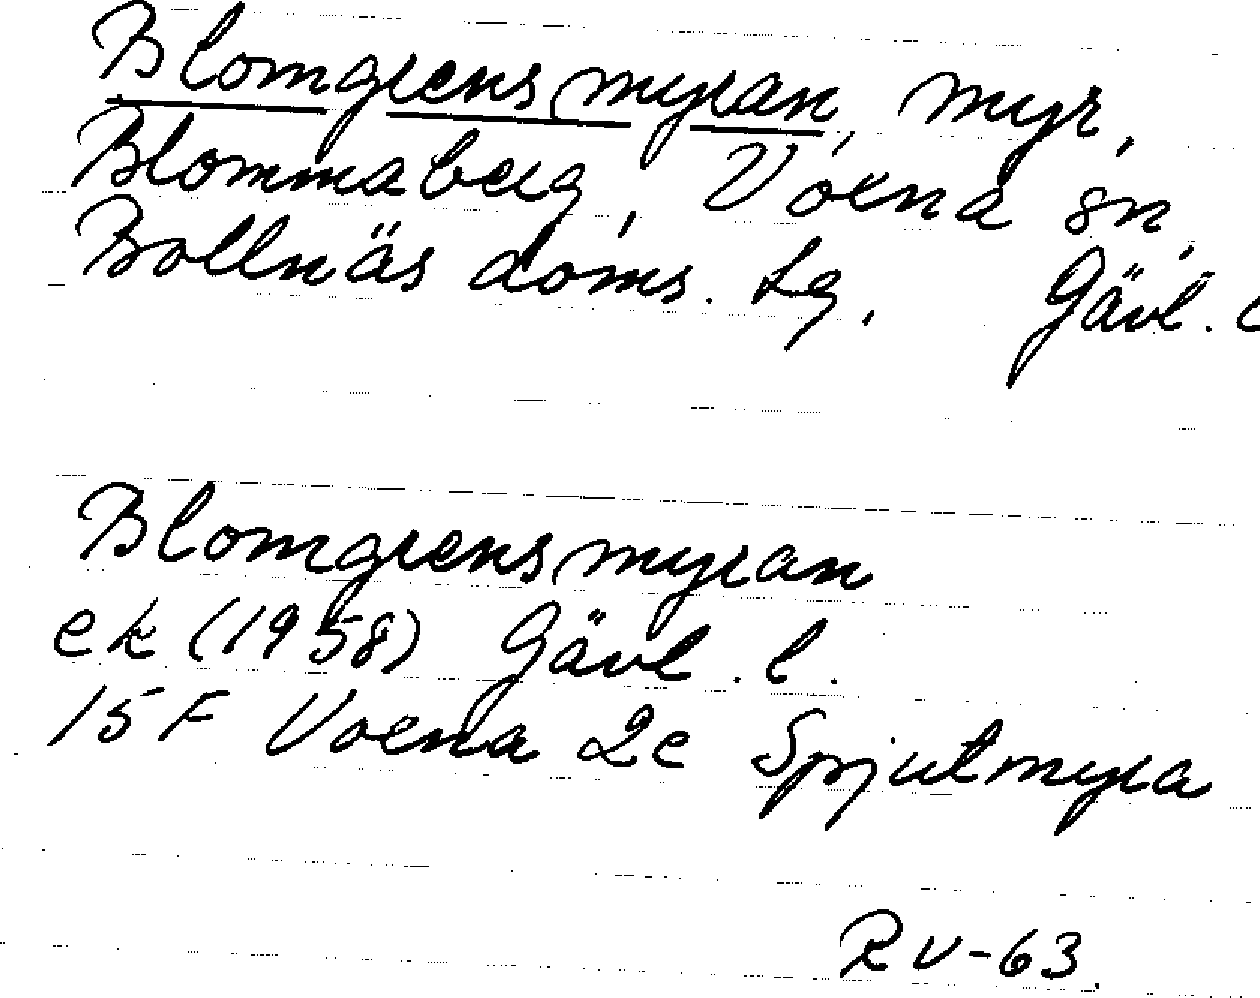 Blomgrensmyran, myr,
Blommaberg, Voxna sn,
Bollnäs doms. Lg, Gävl. l
Blomgrensmyran
ek (1958) Gävl. l.
15F Voxna 2e Spjutmyra
RV-63.